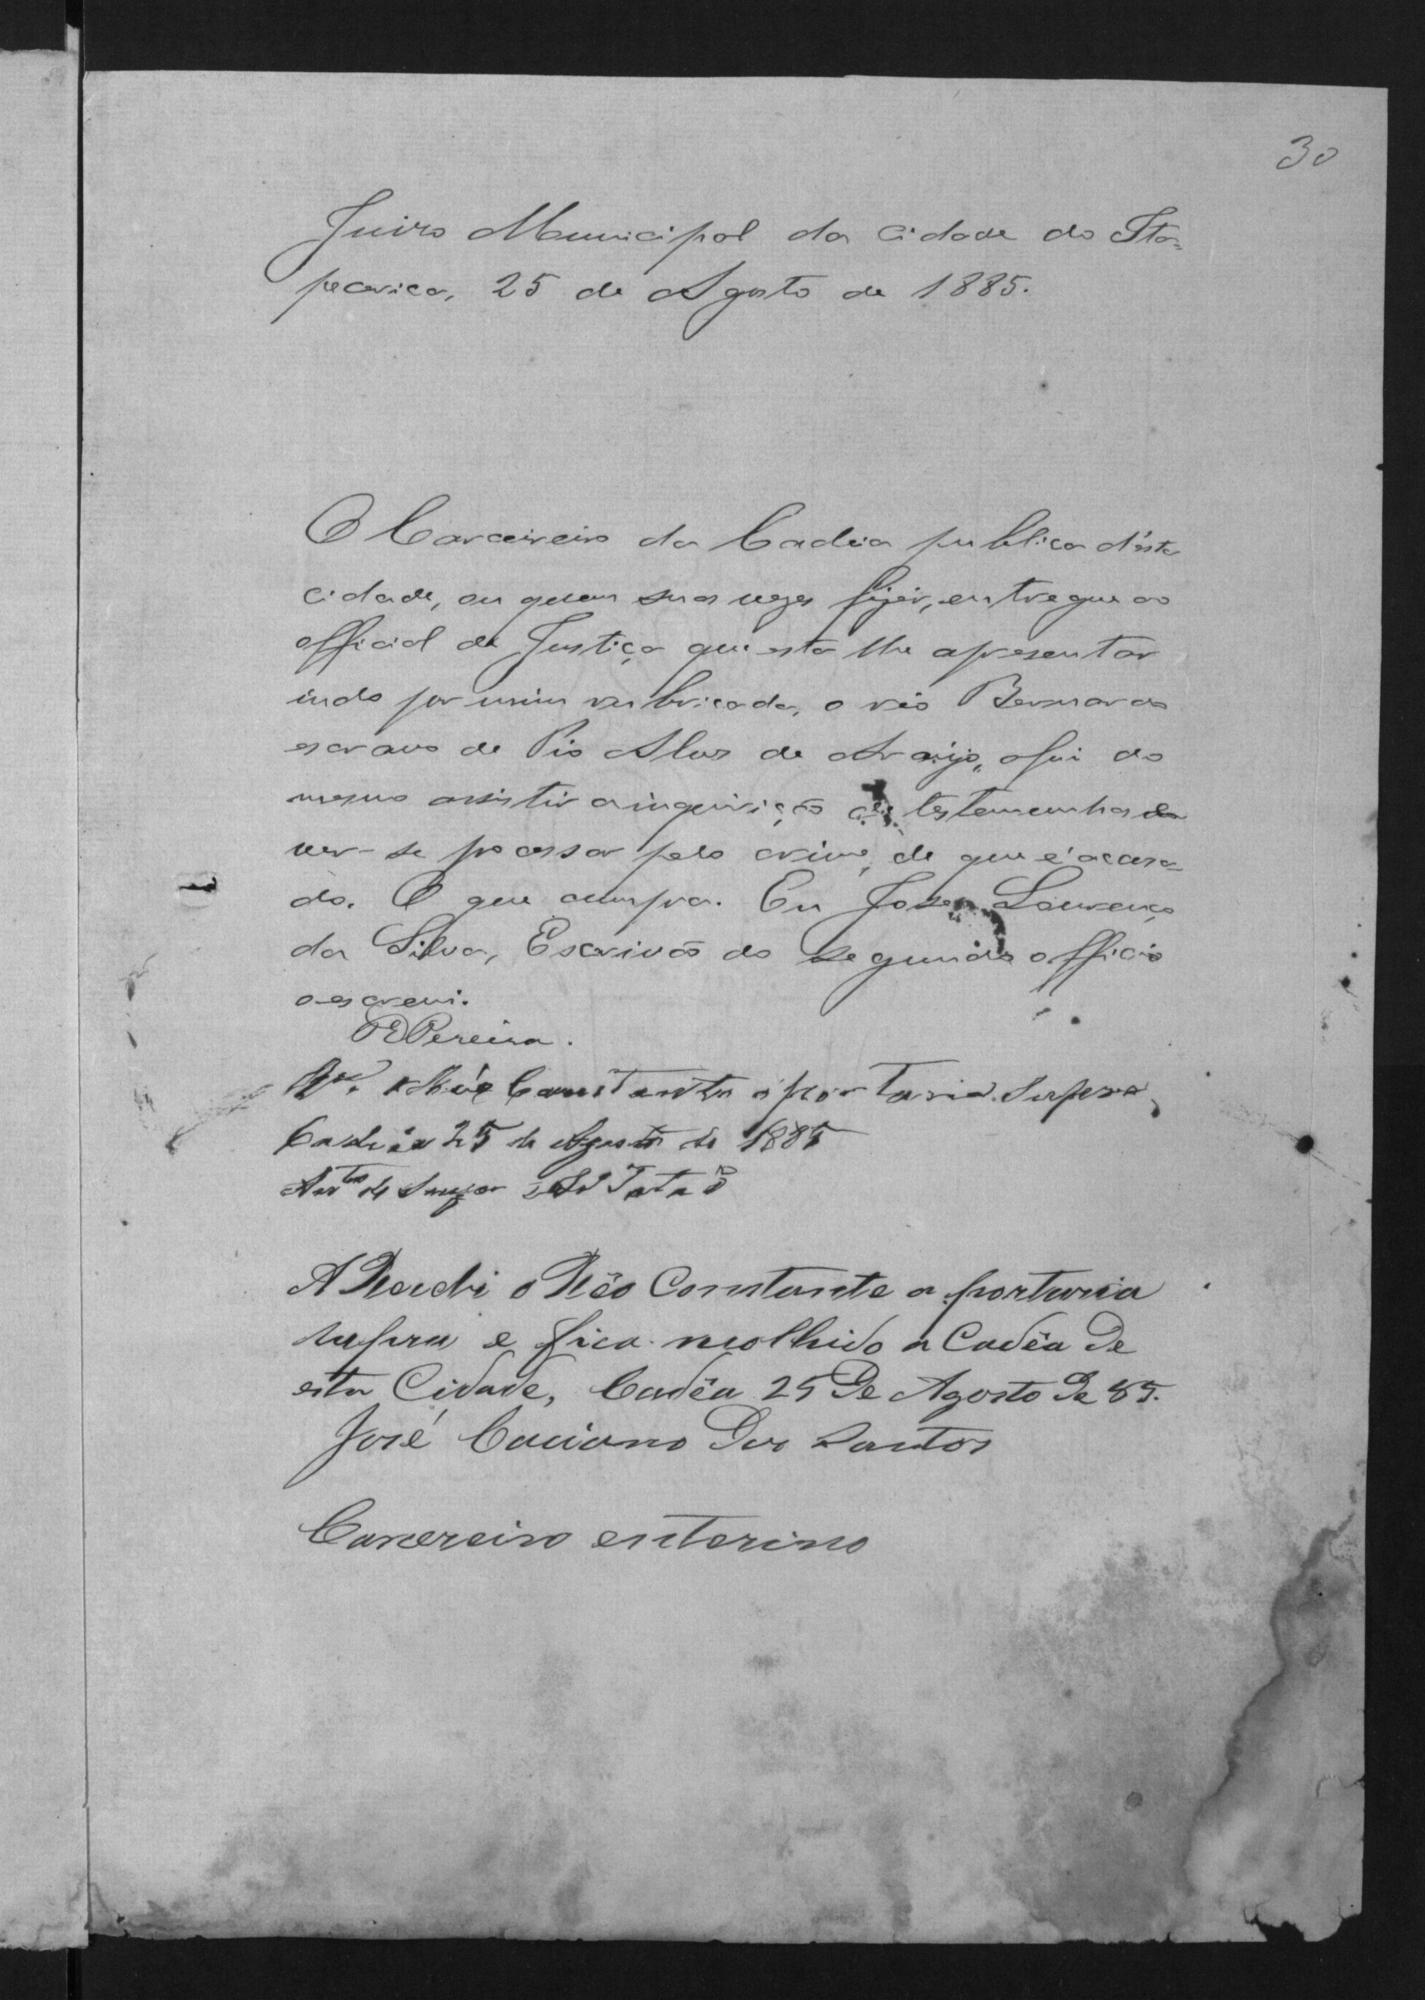 30
Juizo Municipal da Cidade de Ita-
parica, 25 de Agosto de 1885.
O Carcereiro da Cadeia publica d'esta
cidade, ou quem suas vezes fizer, entregue ao
official de Justiça que esta lhe apresentar
indo por mim rubricada, o réo Bernardo
escravo de Pio Alves de Araujo, afim do
mesmo assistir a inquirição de testemunhas e
ver-se processar pelo crime, de que é accusa-
do. O que cumpra. Eu José Lourenço
da Silva, Escrivão do segundo officio
o escrevi.
Pereira.
o Réo Constante a portaria supra,
Cadeia 25 de Agosto de 1885
Ant.º de Souza
A Recebi o Rêo Constante a portaria
supra e fica recolhido a Cadêa De
esta Cidade, Cadêa 25 De Agosto De 85.
José Caciano Dos Santos
Carcereiro enterino